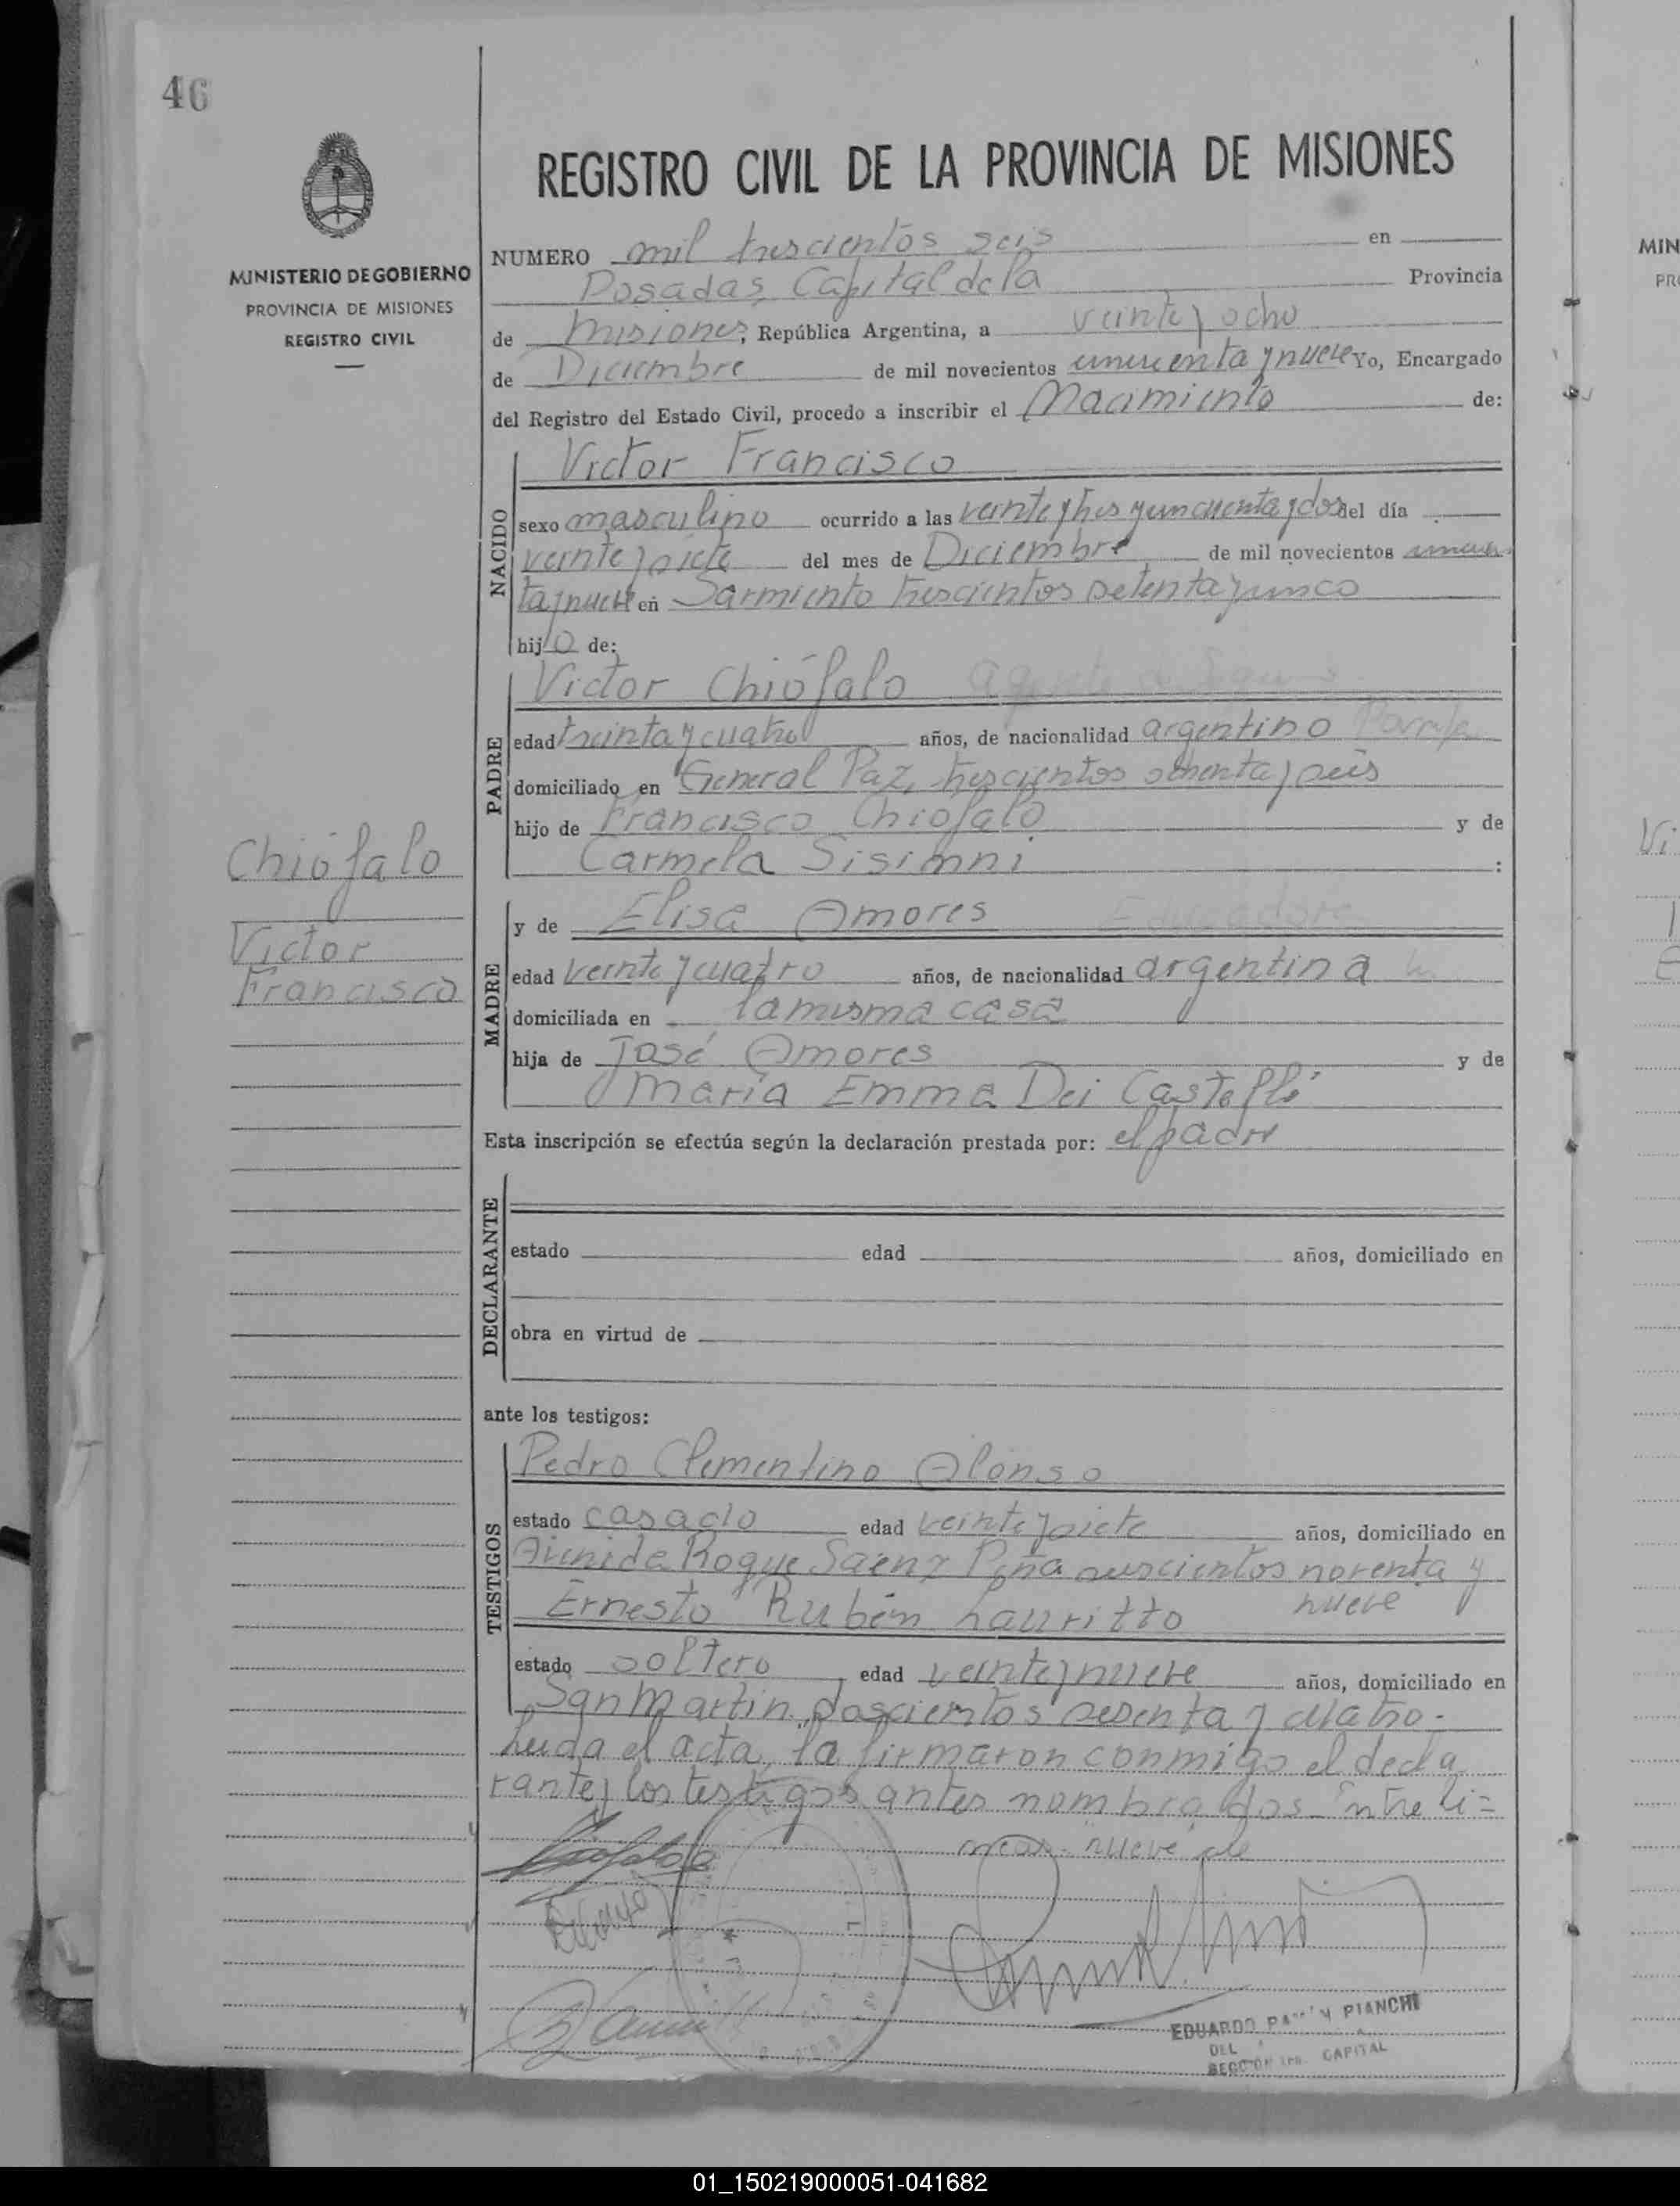 46
REGISTRO CIVIL DE LA PROVINCIA DE MISIONES
MINISTERIO DE GOBIERNO
PROVINCIA DE MISIONES
REGISTRO CIVIL
NUMERO mil trescientos seis en
Posadas, Capital de la Provincia
de Misiones, República Argentina, a veinte y ocho
de Diciembre de mil novecientos cincuenta y nueve Yo, Encargado
del Registro del Estado Civil, procedo a inscribir el Nacimiento de:
NACIDO
Victor Francisco
sexo masculino ocurrido a las veinte y tres y cincuenta y dos del día
veinte y siete del mes de Diciembre de mil novecientos cincuen
ta y nueve en Sarmiento trescientos setenta y cinco
hijo de:
PADRE
Victor Chiófalo
edad treinta y cuatro años, de nacionalidad argentino
domiciliado en General Paz, trescientos ochenta y seis
hijo de Francisco Chiófalo y de
Carmela Sisimni :
Chiófalo
Victor
Francisco
MADRE
y de Elisa Amores Educadora
edad veinte y cuatro años, de nacionalidad argentina
domiciliada en la misma casa
hija de José Amores y de
María Emma Dei Castelli
Esta inscripción se efectúa según la declaración prestada por: el padre
DECLARANTE
estado edad años, domiciliado en
obra en virtud de
ante los testigos:
TESTIGOS
Pedro Clementino Alonso
estado casado edad veinte y siete años, domiciliado en
Avenida Roque Sáenz Peña noventa y
nueve
Ernesto Rubén Lauritto
estado soltero edad veinte y nueve años, domiciliado en
San Martín, doscientos sesenta y cuatro.-
Leida el acta, la firmaron conmigo el decla
rante y los testigos antes nombrados. Entre lí=
neas: nueve vale
EDUARDO PIANCHI
DEL
SECCION 1ra. CAPITAL
01_150219000051-041682